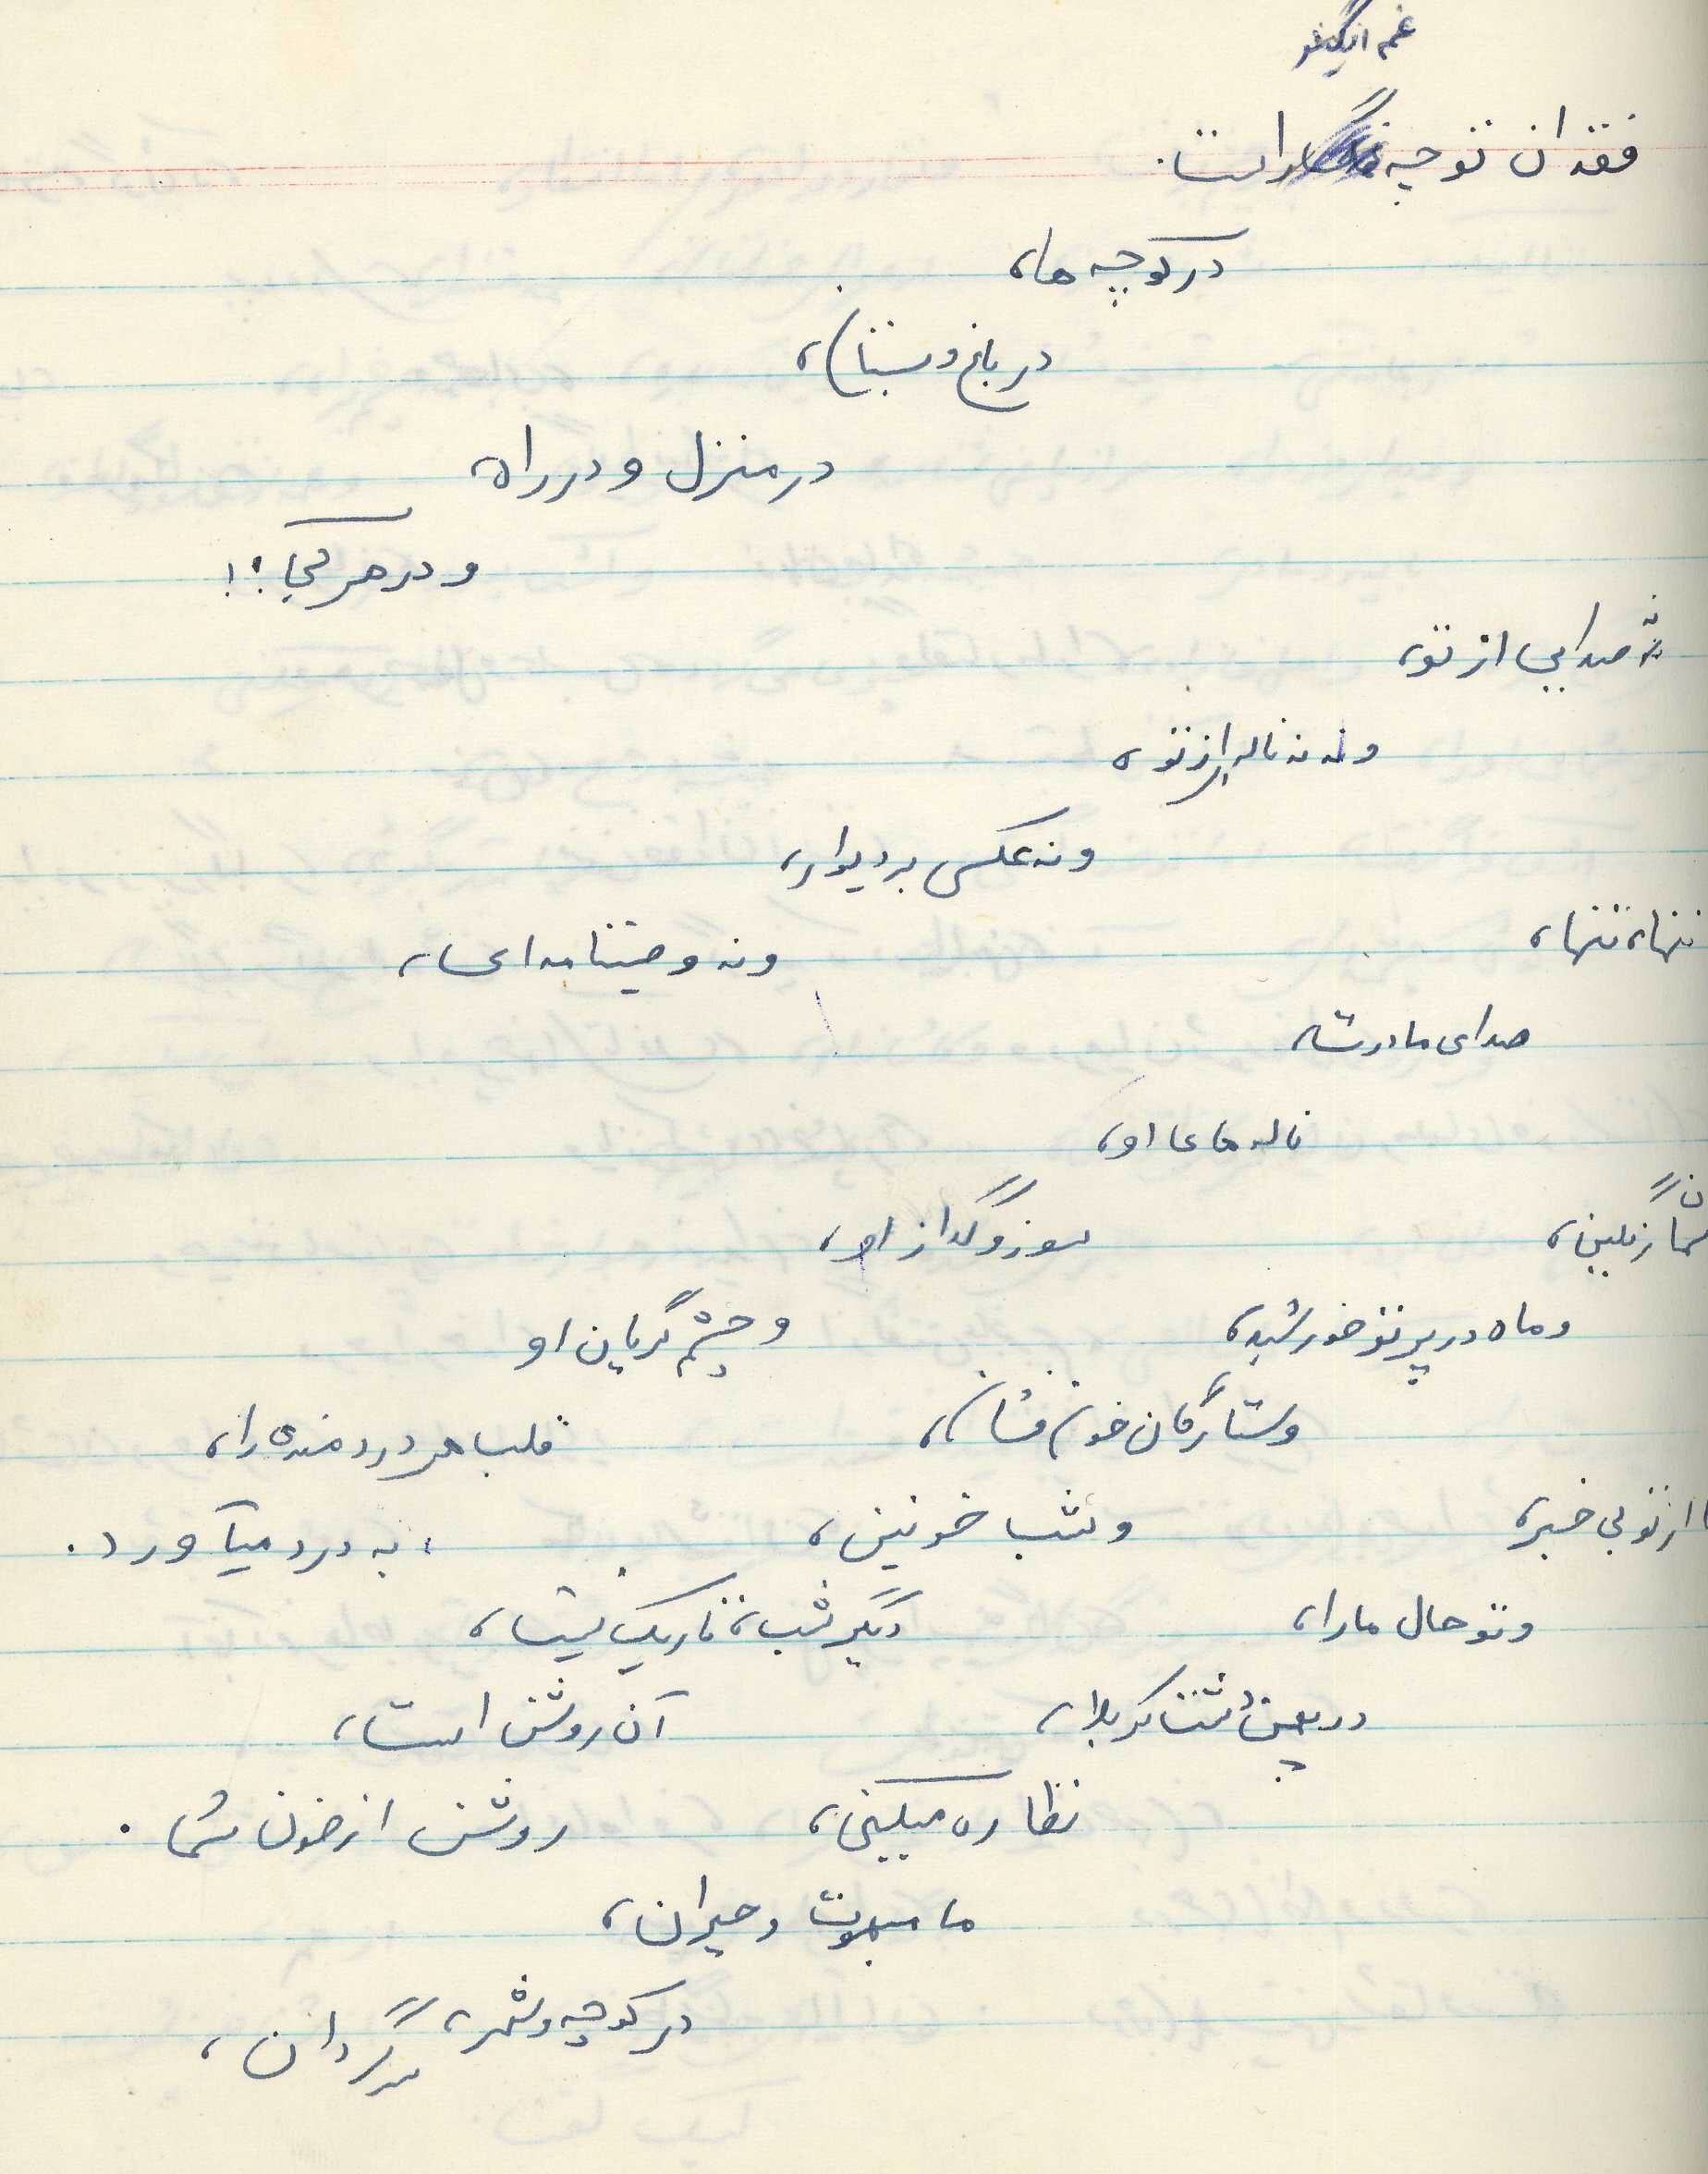 غم انگیز
فقدان تو چه است.
در کوچه ها،
در باغ و بستان،
در منزل و در راه
و در هر کجا؛!
نه صدایی از تو،
و نه ناله ای از تو،
و نه عکسی بر دیوار،
و نه وصیتنامه ای،
تنها، تنها،
صدای مادرت،
ناله های او،
سوز و گداز او،
و چشم گریان او
قلب هر دردمنده را،
به درد میآورد.
رنگین،
و ماه در پرتو خورشید،
و ستارگان خون فشان،
و شب خونین،
دیگر شب، تاریک نیست،
آن روشن است،
روشن از خون شما.
از تو بی خبر،
و تو حال ما را،
در بهین دشت کربلا،
نظاره میکنی،
ما مبهوت و حیران،
در کوچه و شهر، سرگردان،